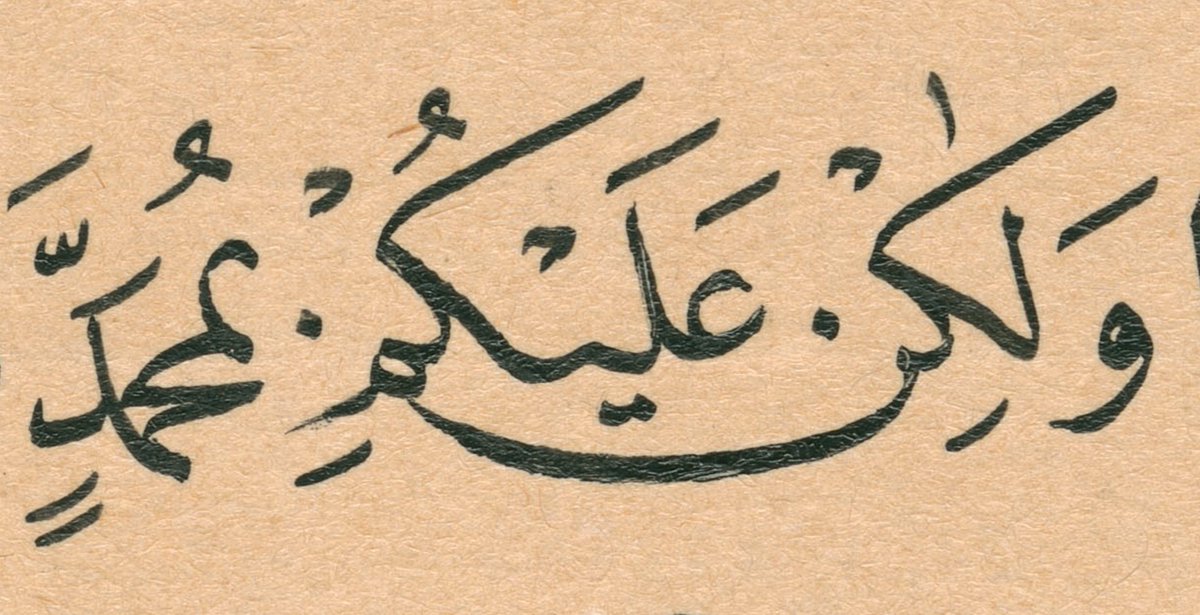 وَلٰكِنْ عَلَيْكُمْ بِمُحَمَّدٍ